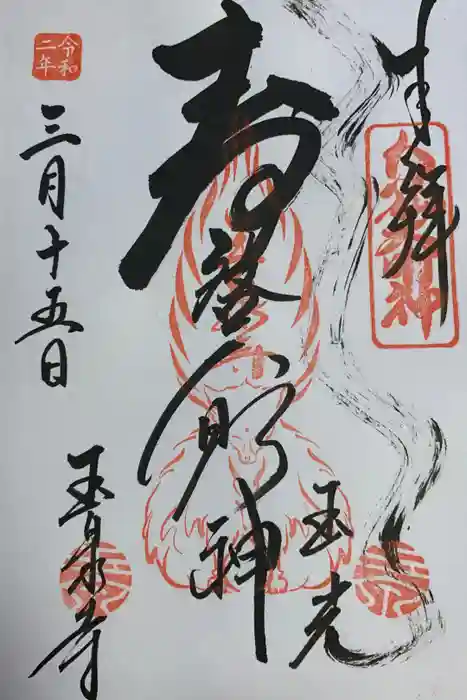 奉拝
玉光
寿
明神
令和
二年
三月十五日
玉泉寺